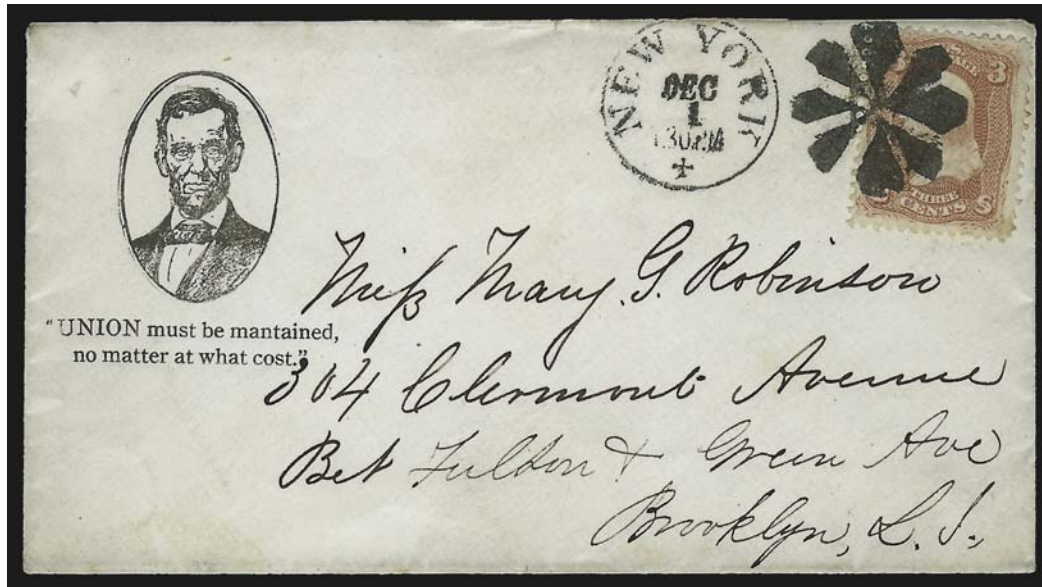 NEW YORK
DEC
1
1.30 PM
3
CENTS
"UNION must be mantained,
no matter at what cost."
Miss Mary. G. Robinson
304 Clermont Avenue
Bet Fulton & Green Ave
Brooklyn, L. I.,